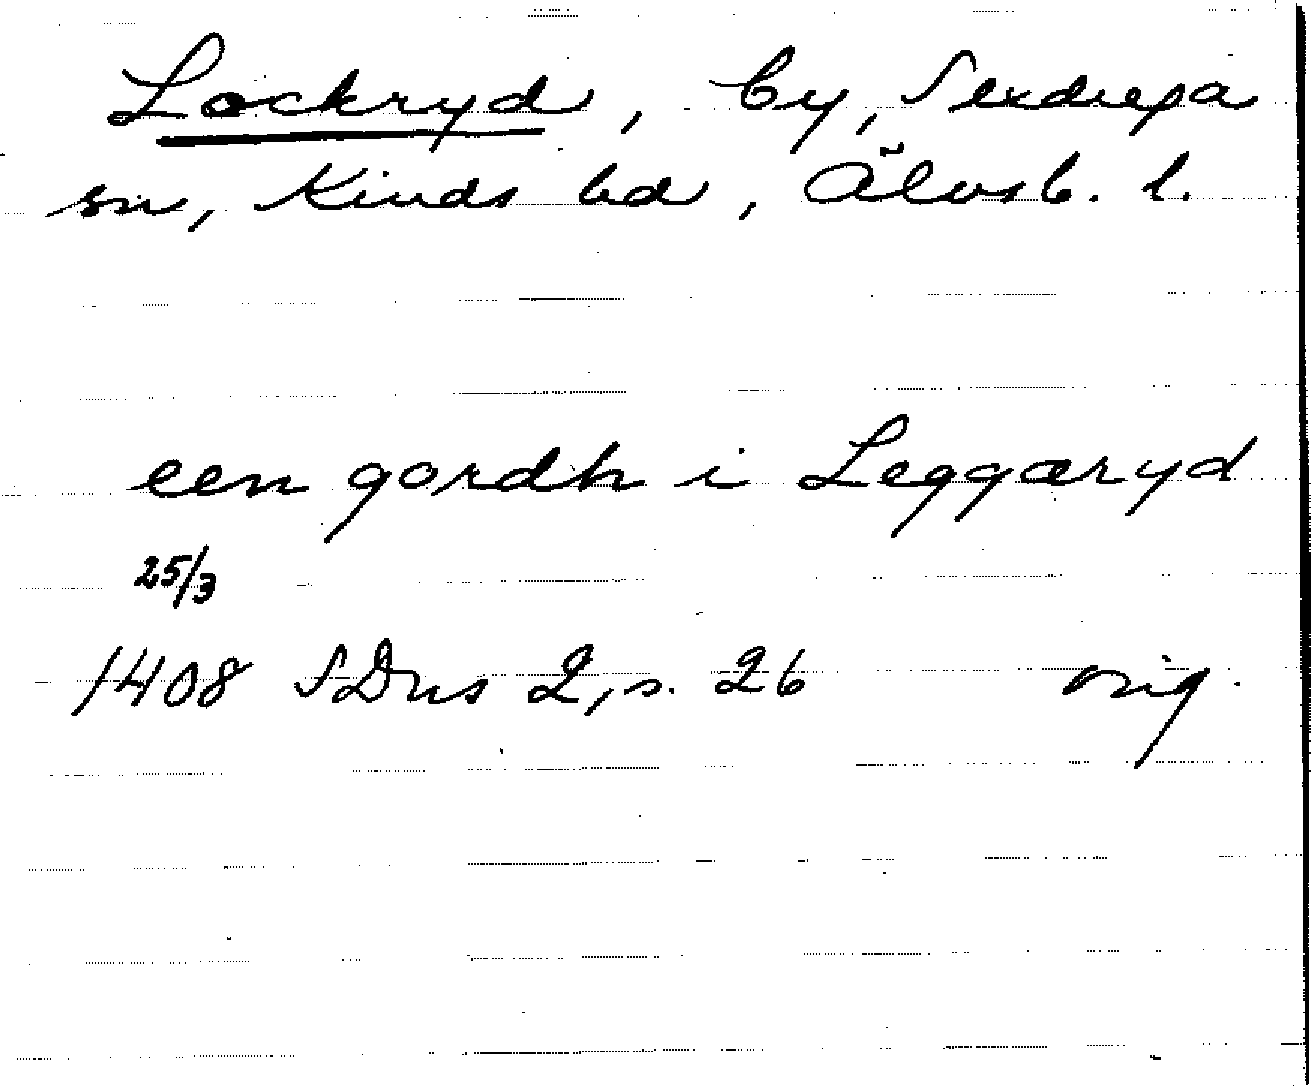 Lockryd, by, Sexdrega
sn, Kinds hd, Älvsb. l.
een gordh i Leggæryd
25/3
1408 SDns 2, s. 26 orig.